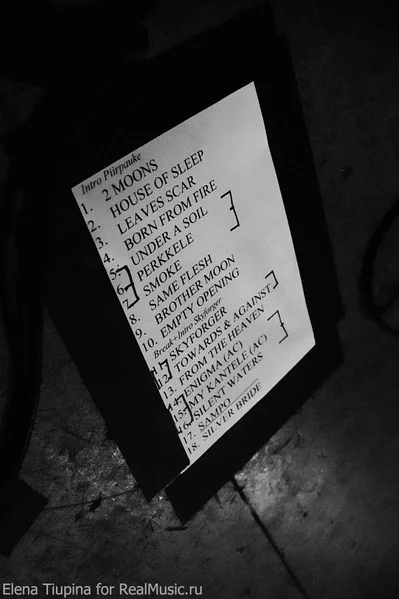 Intro Piirpauke
1. 2 MOONS
2. HOUSE OF SLEEP
3. LEAVES SCAR
4. BORN FROM FIRE
5. UNDER A SOIL
6. PERKKELE
7. SMOKE
8. SAME FLESH
9. BROTHER MOON
10. EMPTY OPENING
Break+Intro Skyforger
11. SKYFORGER
12. TOWARDS & AGAINST
13. FROM THE HEAVEN
14. ENIGMA (AC)
15. MY KANTELE (AC)
16. SILENT WATERS
17. SAMPO
18. SILVER BRIDE
Elena Tiupina for RealMusic.ru